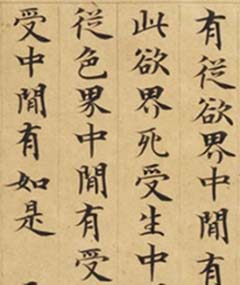 有從欲界中閒有
此欲界死受生中
從色界中閒有受
受中閒有如是